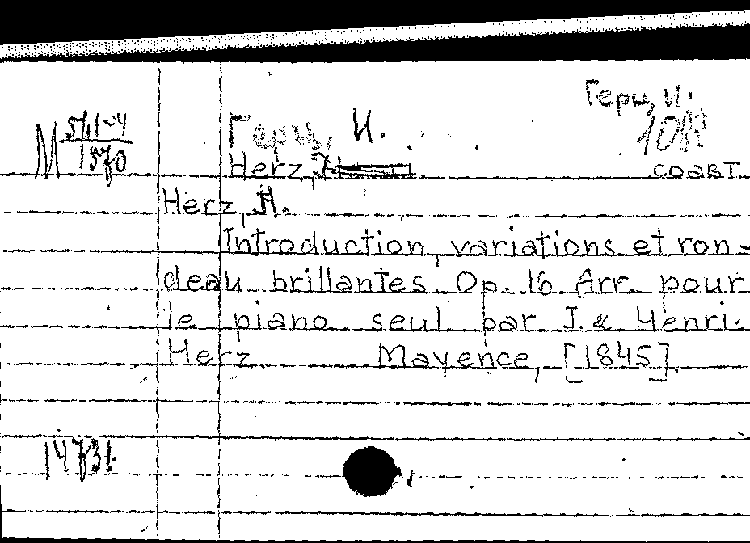 Герц, И.
М 571-4/1570
Герц, И.
108
Herz,
соавт.
Herz, H.
Introduction, variations et ron-
deau brillantes. Op. 16. Arr. pour
le piano seul par J. & Henri
Herz Mayence, [1845].
14731